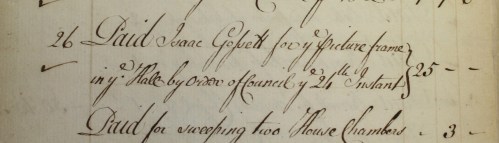 26 Paid Isaac Gossett for yᵉ Picture frame
in yᵉ Hall by Order of Council yᵉ 24th Instant } 25 - -
Paid for sweeping two House Chambers - 3 -